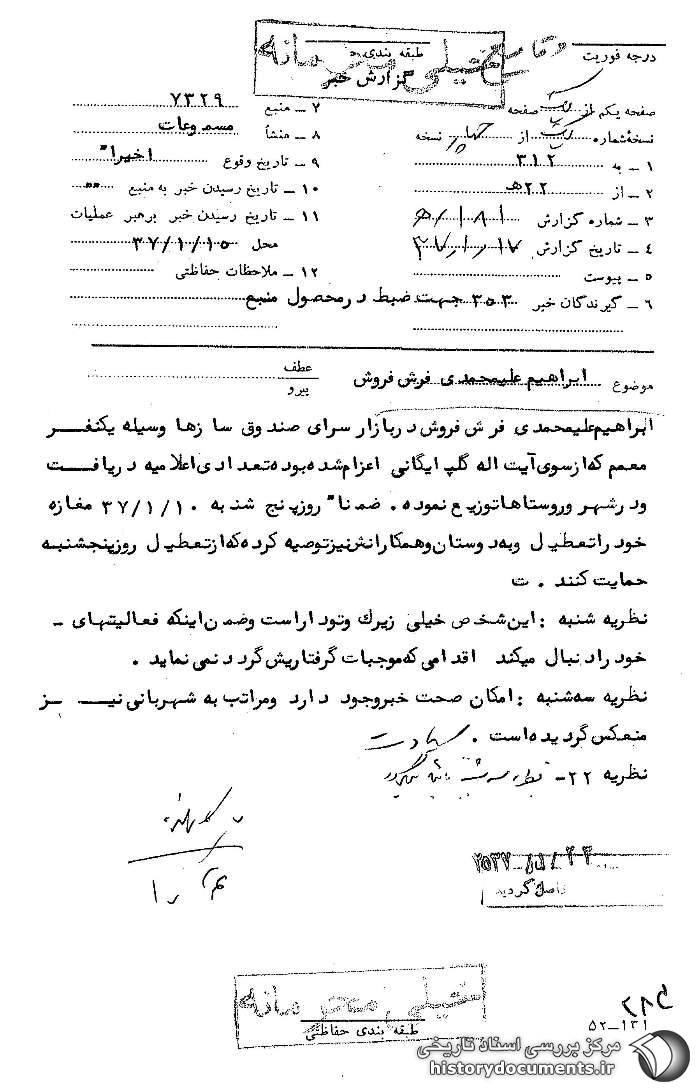 درجه فوریت
طبقه بندی
خیلی محرمانه
گزارش خبر
صفحه یکم از یک صفحه
نسخه شماره یک از چهار نسخه
۱ ـ به ۳۱۲
۲ ـ از ۲۲هـ
۳ ـ شماره گزارش
۴ ـ تاریخ گزارش ۳۷/۱/۱۷
۵ ـ پیوست
۶ ـ گیرندگان خبر ۳۵۳ جهت ضبط در محصول منبع
۷ ـ منبع ۷۳۲۹
۸ ـ منشأ مسموعات
۹ ـ تاریخ وقوع اخیرا"
۱۰ ـ تاریخ رسیدن خبر به منبع ""
۱۱ ـ تاریخ رسیدن خبر برهبر عملیات
محل ۳۷/۱/۱۵
۱۲ ـ ملاحظات حفاظتی
موضوع ابراهیم علیمحمدی فرش فروش
عطف
پیرو
ابراهیم علیمحمدی فرش فروش در بازار سرای صندوق سازها وسیله یکنفر
معمم که از سوی آیت اله گلپایگانی اعزام شده بوده تعدادی اعلامیه دریافت
ودر شهر وروستاها توزیع نموده . ضمنا" روز پنج شنبه ۳۷/۱/۱۰ مغازه
خود را تعطیل وبه دوستان وهمکارانش نیز توصیه کرده که از تعطیل روز پنجشنبه
حمایت کنند . ت
نظریه شنبه : این شخص خیلی زیرک وتودار است وضمن اینکه فعالیتهای ـ
خود را دنبال میکند اقدامی که موجبات گرفتاریش گردد نمی نماید .
نظریه سه شنبه : امکان صحت خبر وجود دارد ومراتب به شهربانی نیـــز
منعکس گردیده است .
نظریه ۲۲-
واصل گردید
خیلی محرمانه
طبقه بندی حفاظتی
۵۲ـ۱۳۱
مرکز بررسی اسناد تاریخی
historydocuments.ir